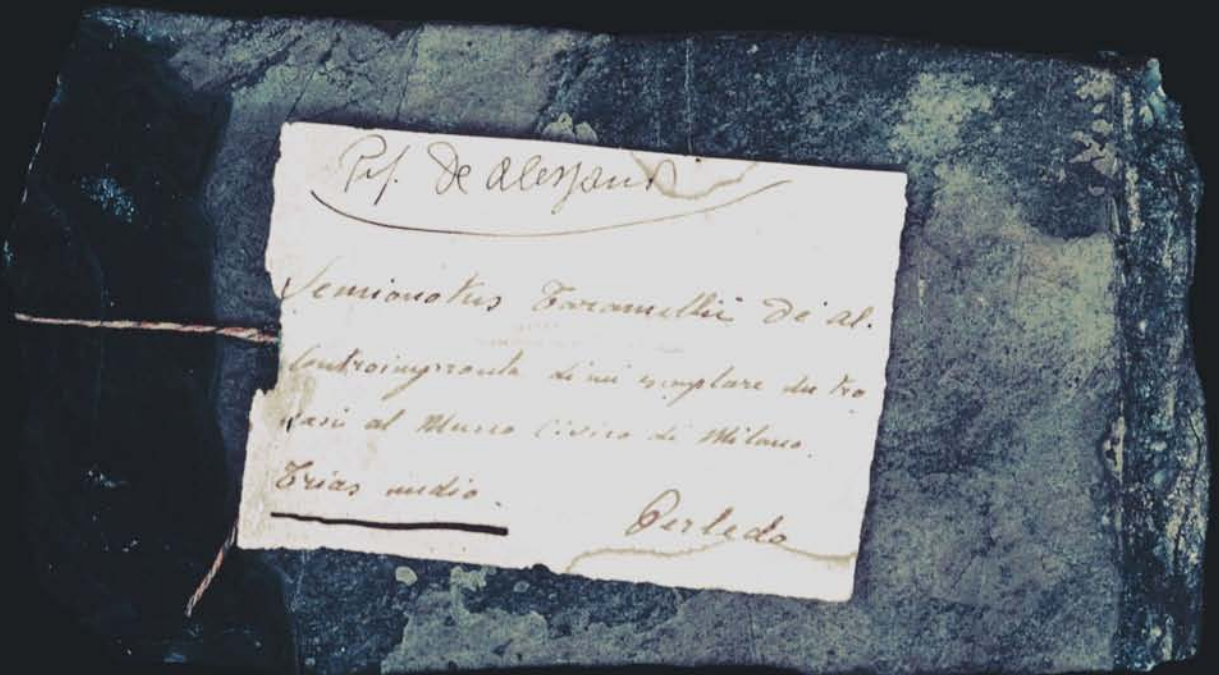 Prf. De Alessandri
Semionotus Taramellii De Al.
Controimpronta di un esemplare che tro
vasi al Museo Civico di Milano.
Trias medio.
Perledo